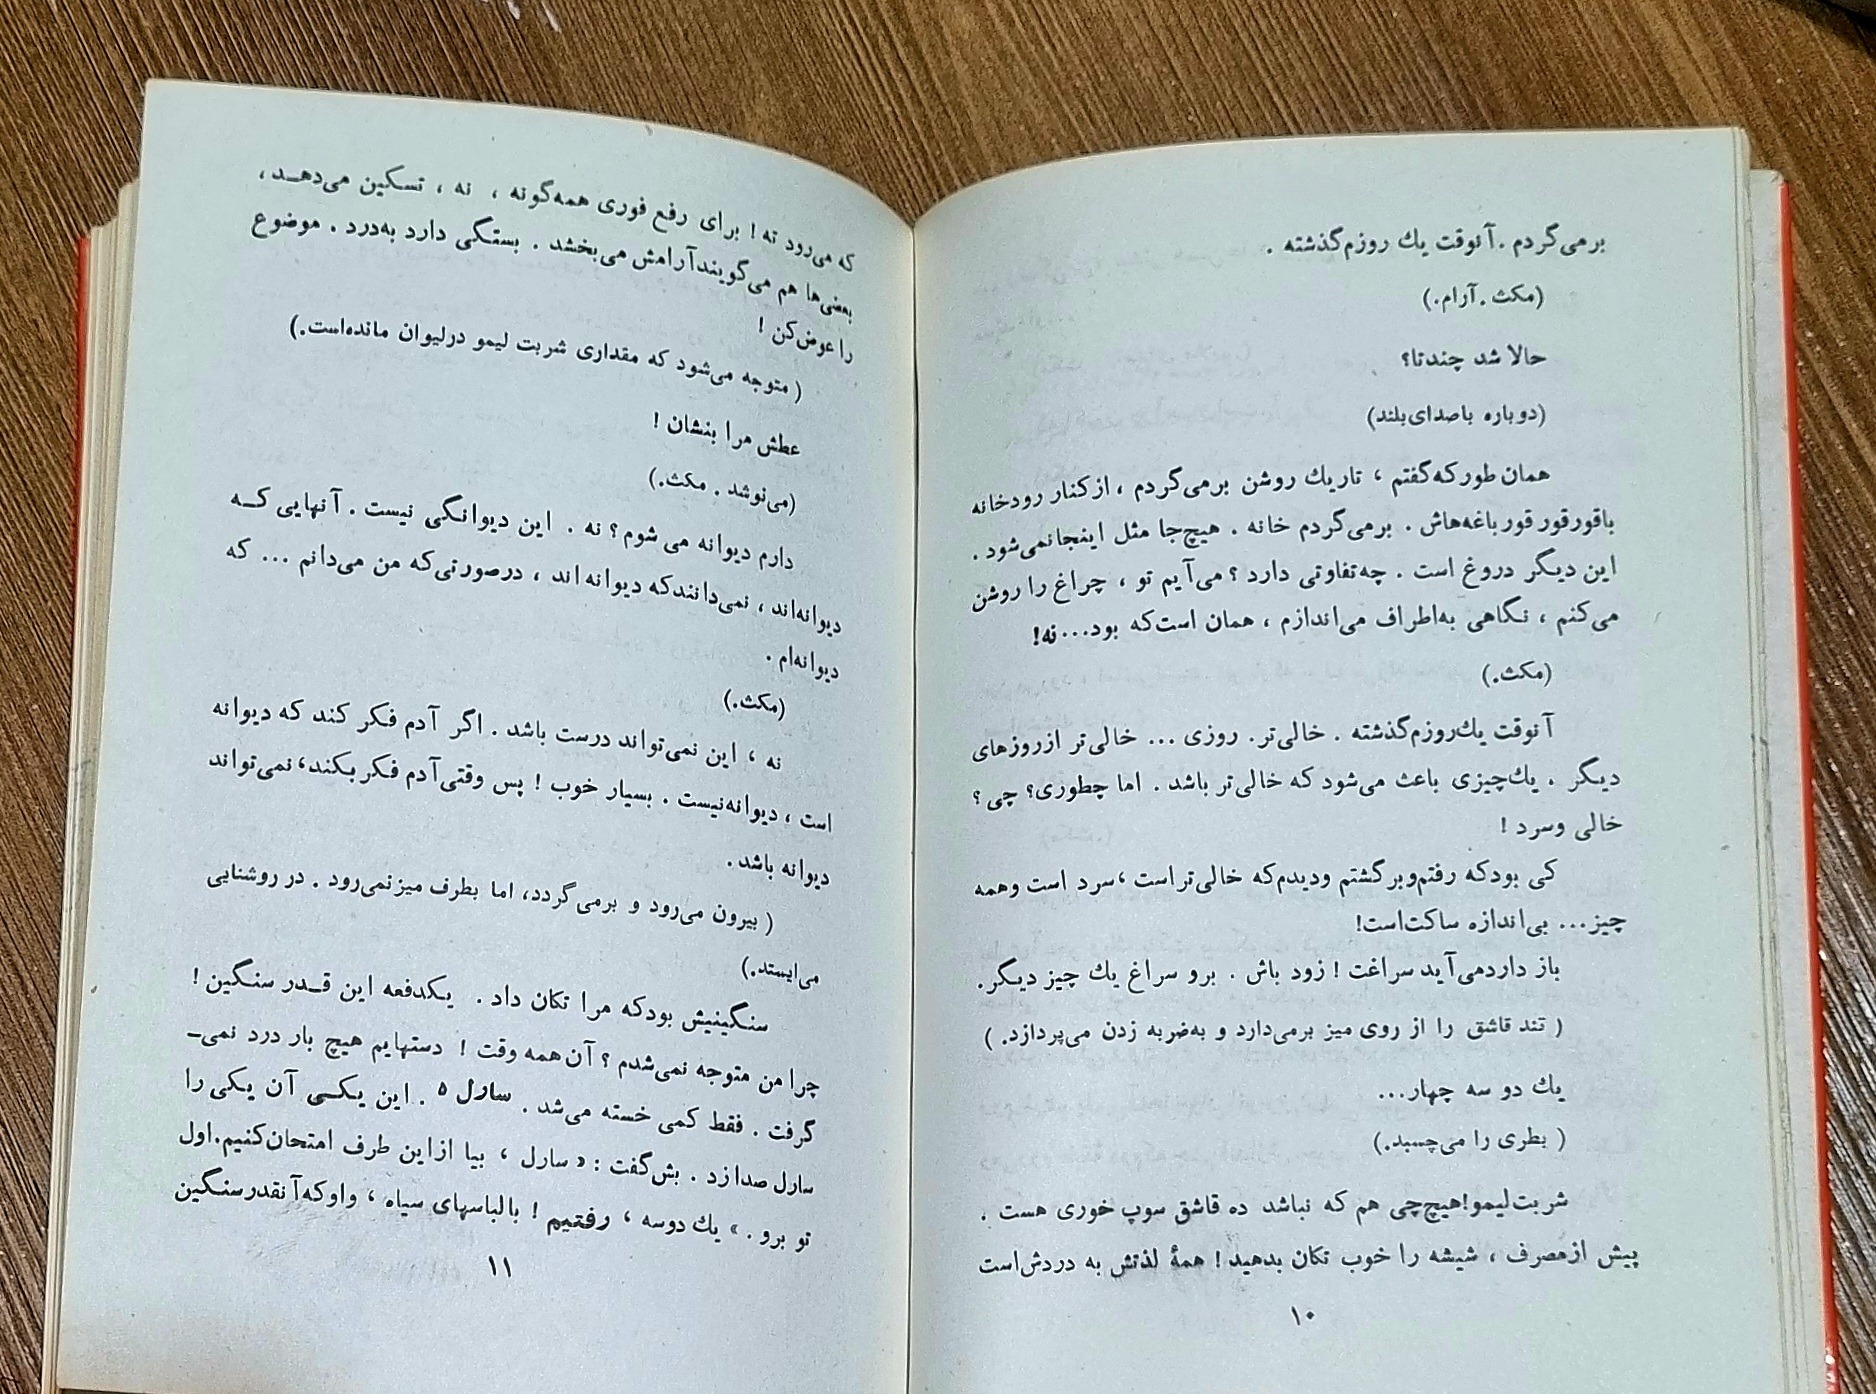 برمی‌گردم . آنوقت یك روزم گذشته .
(مکث . آرام.)
حالا شد چندتا؟
(دوباره باصدای‌بلند)
همان طور که گفتم ، تاریك روشن برمی‌گردم ، از کنار رودخانه
باقورقور قورباغه‌هاش . برمی‌گردم خانه . هیچ‌جا مثل اینجا نمی‌شود .
این دیگر دروغ است . چه‌تفاوتی دارد ؟ می‌آیم تو ، چراغ را روشن
می‌کنم ، نگاهی به‌اطراف می‌اندازم ، همان است‌که بود... نه!
(مکث.)
آنوقت یك‌روزم گذشته . خالی‌تر. روزی ... خالی‌تر ازروزهای
دیگر . یك‌چیزی باعث می‌شود که خالی‌تر باشد . اما چطوری؟ چی ؟
خالی وسرد !
کی بودکه رفتم‌وبرگشتم ودیدم‌که خالی‌تراست ،سرد است وهمه
چیز... بی‌اندازه ساکت‌است!
باز داردمی‌آید سراغت ! زود باش . برو سراغ یك چیز دیگر.
( تند قاشق را از روی میز برمی‌دارد و به‌ضربه زدن می‌پردازد. )
یك دو سه چهار...
( بطری را می‌چسبد.)
شربت‌لیمو!هیچ‌چی هم که نباشد ده قاشق سوپ خوری هست .
پیش ازمصرف ، شیشه را خوب تکان بدهید ! همهٔ لذتش به دردش‌است
۱۰
که می‌رود ته ! برای رفع فوری همه‌گونه ، نه ، تسکین می‌دهـد ،
بعضی‌ها هم می‌گویندآرامش می‌بخشد . بستگی دارد به‌درد . موضوع
را عوض‌کن !
( متوجه می‌شود که مقداری شربت لیمو درلیوان مانده‌است.)
عطش مرا بنشان !
(می‌نوشد . مکث.)
دارم دیوانه می شوم ؟ نه . این دیوانگی نیست . آنهایی کـه
دیوانه‌اند ، نمی‌دانندکه دیوانه اند ، درصورتی‌که من می‌دانم ... که
دیوانه‌ام .
(مکث.)
نه ، این نمی‌تواند درست باشد . اگر آدم فکر کند که دیوانه
است ، دیوانه‌نیست . بسیار خوب ! پس وقتی‌آدم فکر بکند، نمی‌تواند
دیوانه باشد .
( بیرون می‌رود و برمی‌گردد، اما بطرف میزنمی‌رود . در روشنایی
می‌ایستد.)
سنگینیش بودکه مرا تکان داد . یکدفعه این قـدر سنگین !
چرا من متوجه نمی‌شدم ؟ آن همه وقت ! دستهایم هیچ بار درد نمی‌ـ
گرفت . فقط کمی خسته می‌شد . سارل ۵ . این یکـی آن یکی را
سارل صدا زد . بش‌گفت : « سارل ، بیا ازاین طرف امتحان‌کنیم.اول
تو برو . » یك دوسه ، رفتیم ! بالباسهای سیاه ، واوکه‌آنقدرسنگین
۱۱